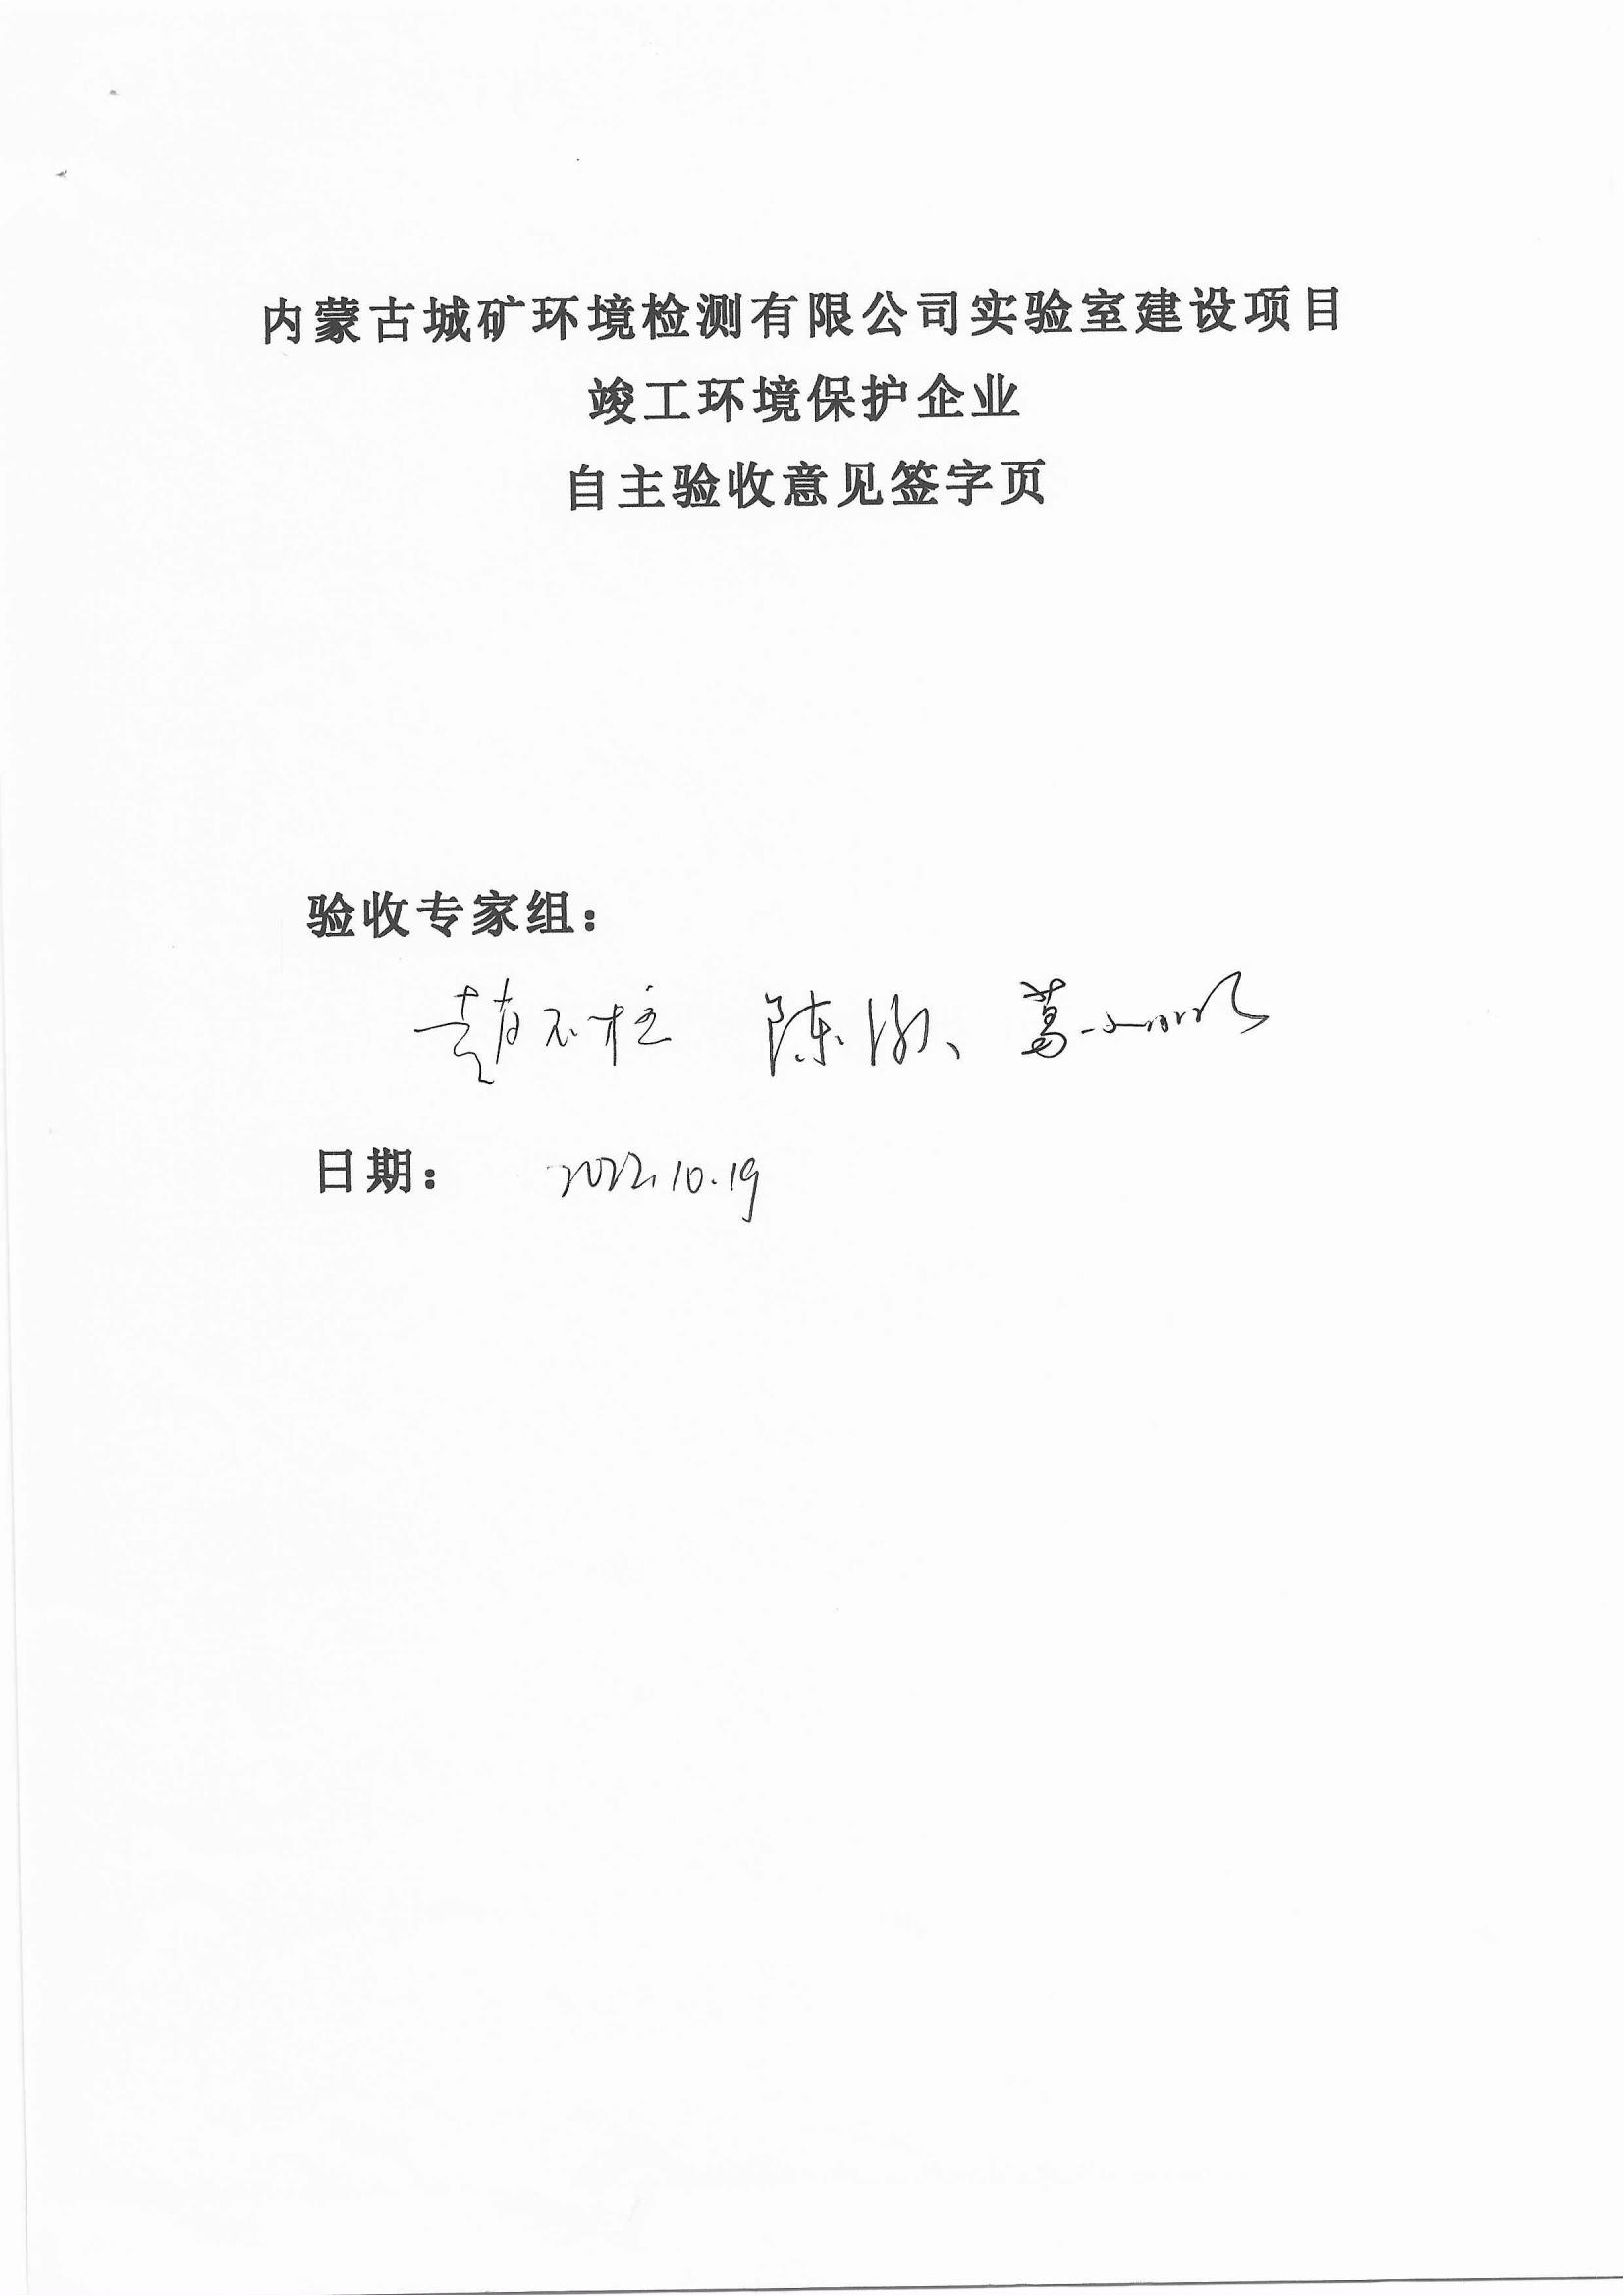 内蒙古城矿环境检测有限公司实验室建设项目
竣工环境保护企业
自主验收意见签字页
验收专家组：
陈 葛
日期： 2022.10.19